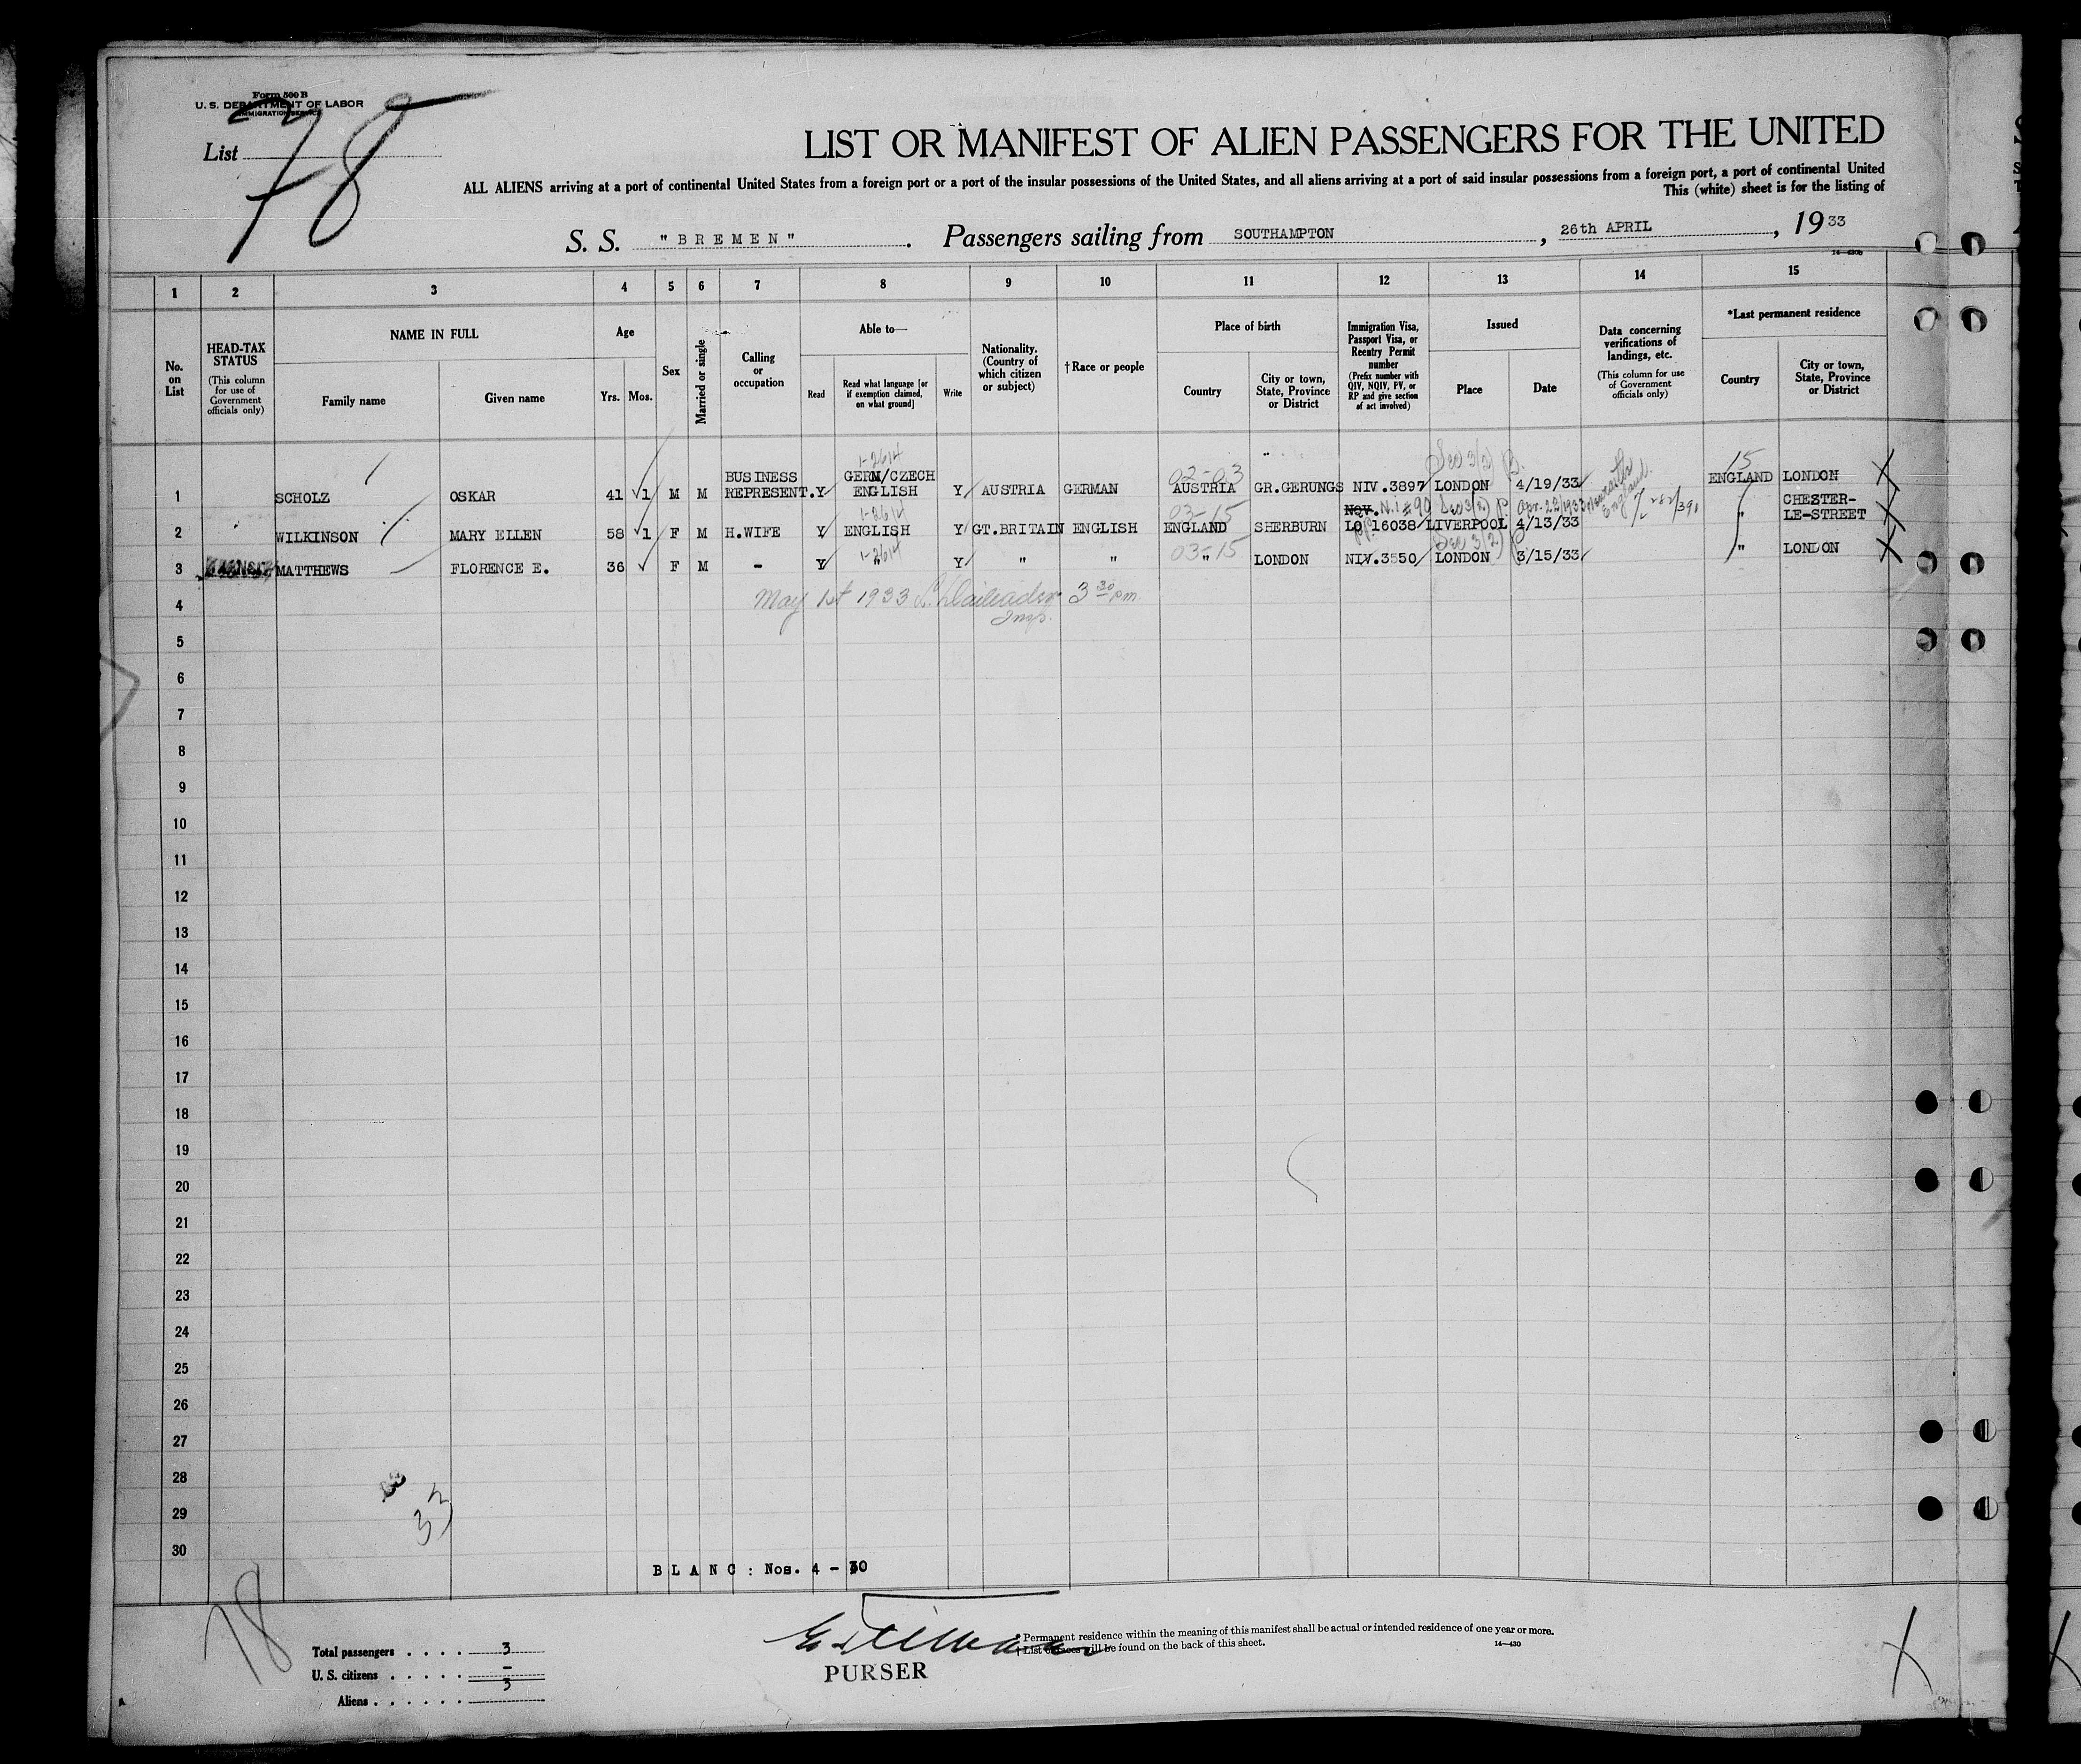 Form 500 B
U. S. DEPARTMENT OF LABOR
IMMIGRATION SERVICE
List 78
LIST OR MANIFEST OF ALIEN PASSENGERS FOR THE UNITED
ALL ALIENS arriving at a port of continental United States from a foreign port or a port of the insular possessions of the United States, and all aliens arriving at a port of said insular possessions from a foreign port, a port of continental United
This (white) sheet is for the listing of
S. S. "BREMEN". Passengers sailing from SOUTHAMPTON, 26th APRIL, 1933
1 2 3 4 5 6 7 8 9 10 11 12 13 14 15
No. on List
HEAD-TAX STATUS
(This column for use of Government officials only)
NAME IN FULL
Family name
Given name
Age
Yrs. Mos.
Sex
Married or single
Calling or occupation
Able to—
Read
Read what language [or if exemption claimed, on what ground]
Write
Nationality. (Country of which citizen or subject)
†Race or people
Place of birth
Country
City or town, State, Province or District
Immigration Visa, Passport Visa, or Reentry Permit number
(Prefix number with QIV, NQIV, PV, or RP and give section of act involved)
Issued
Place
Date
Data concerning verifications of landings, etc.
(This column for use of Government officials only)
*Last permanent residence
Country
City or town, State, Province or District
1-2614 02-03 Sec 3(2) B. 15
1 SCHOLZ OSKAR 41 1 M M BUSINESS REPRESENT. Y GERM/CZECH ENGLISH Y AUSTRIA GERMAN AUSTRIA GR.GERUNGS NIV.3897 LONDON 4/19/33 ENGLAND LONDON
1-2614 03-15 N.i #90 Sec 3(2) Apr. 22/1933 England
2 WILKINSON MARY ELLEN 58 1 F M H.WIFE Y ENGLISH Y GT.BRITAIN ENGLISH ENGLAND SHERBURN LO 16038 LIVERPOOL 4/13/33 " CHESTER-LE-STREET
1-2614 03-15 Sec 3(2)
3 MATTHEWS FLORENCE E. 36 F M - Y " Y " " " LONDON NIV.3550 LONDON 3/15/33 " LONDON
4 May 1st 1933 3 30 pm.
Insp.
5
6
7
8
9
10
11
12
13
14
15
16
17
18
19
20
21
22
23
24
25
26
27
28
29
33
30
BLANC: Nos. 4 - 30
78
Total passengers 3
U. S. citizens -
Aliens 3
PURSER
* Permanent residence within the meaning of this manifest shall be actual or intended residence of one year or more.
† List of races will be found on the back of this sheet.
14—430